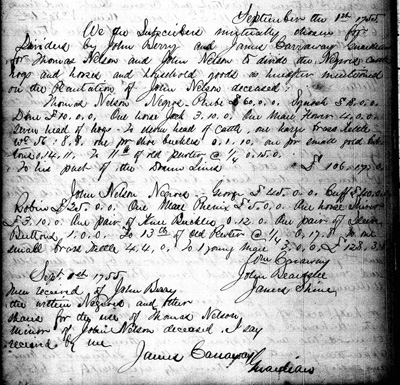 September the 1st 1755
We the Subscribers mutually chosen for
Divided by John Berry and James Carraway Guardian
for Thomas Nelson and John Nelson to divide the Negroes cattle
hogs and horses and household goods as mentioned
on the Plantation of John Nelson deceased:
Thomas Nelson Negroe Phebe £60.0.0. £8.0.0.
£10.0.0. One horse Jack 3.10.0. One Mare 4.0.0
Seven head of hogs. To seven head of cattle, one large brass kettle
wt 56. 8.8. one pr shoe buckles 0.1.10. one pr small gold
0.14.11. To 11 lb of old pewter @ 1/4 0.15.0.
To his part of the £106.
John Nelson Negroes George £45.0.0. Cuff £40.
£35.0.0. One Mare £5.0.0. One horse
£3.10.0. One pair of Knee Buckles 0.12.0. One pair of
Buttons, 1.0.0. To 13 lb of old Pewter @ 1/4 0.17.8. To one
small brass kettle 4.4.0. To 1 young 3.0.0 £128.
John Carraway
Sept 1st 1755
John
then received of John Berry
James Shine
the within Negroes and other
share for the use of Thomas Nelson
minor of John Nelson deceased, I say
received by me
James Carraway
Guardian